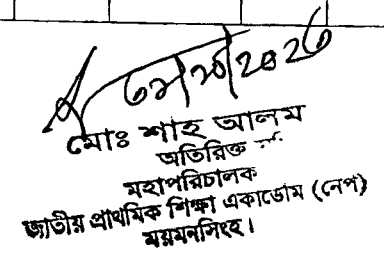 মোঃ শাহ আলম
অতিরিক্ত
মহাপরিচালক
জাতীয় প্রাথমিক শিক্ষা একাডেমি (নেপ)
ময়মনসিংহ।